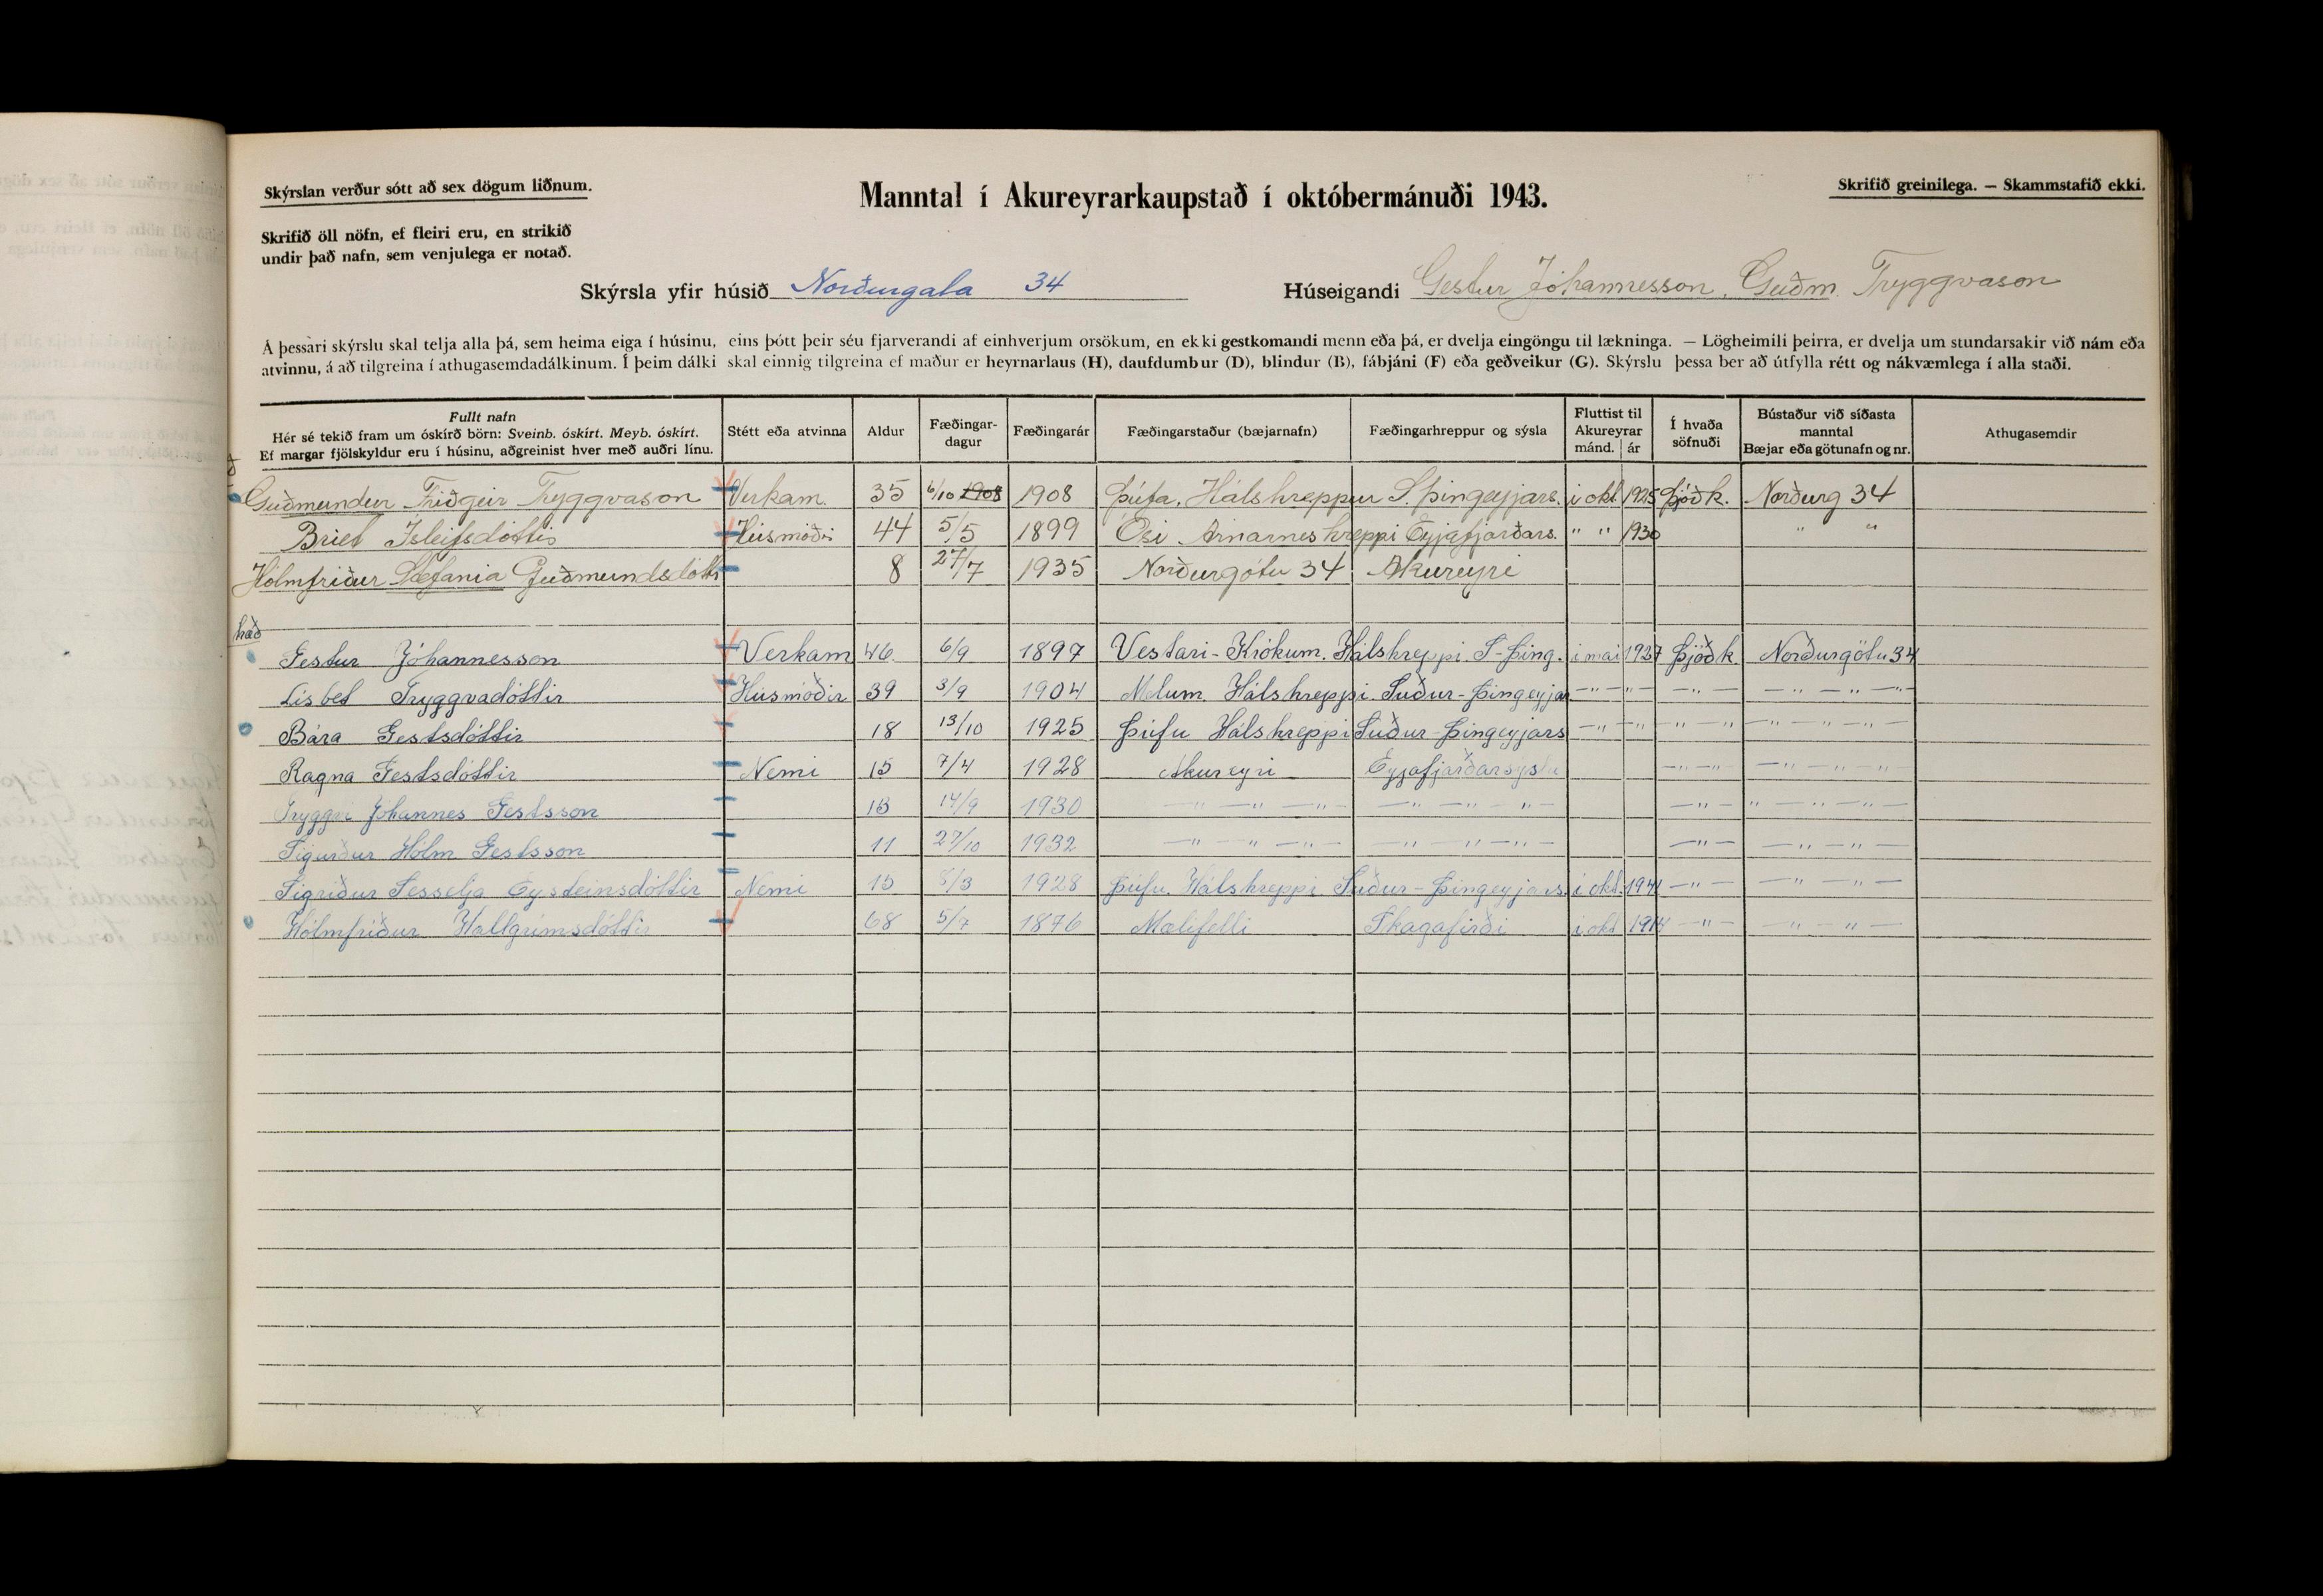 Skýrslan verður sótt að sex dögum liðnum.
Manntal í Akureyrarkaupstað í októbermánuði 1943.
Skrifið greinilega. — Skammstafið ekki.
Skrifið öll nöfn, ef fleiri eru, en strikið
undir það nafn, sem venjulega er notað.
Skýrsla yfir húsið Norðurgata 34 Húseigandi Gestur Jóhannesson, Guðm. Tryggvason
Á þessari skýrslu skal telja alla þá, sem heima eiga í húsinu, eins þótt þeir séu fjarverandi af einhverjum orsökum, en ekki gestkomandi menn eða þá, er dvelja eingöngu til lækninga. — Lögheimili þeirra, er dvelja um stundarsakir við nám eða
atvinnu, á að tilgreina í athugasemdadálkinum. Í þeim dálki skal einnig tilgreina ef maður er heyrnarlaus (H), daufdumbur (D), blindur (B), fábjáni (F) eða geðveikur (G). Skýrslu þessa ber að útfylla rétt og nákvæmlega í alla staði.
Fullt nafn
Hér sé tekið fram um óskírð börn: Sveinb. óskírt. Meyb. óskírt.
Ef margar fjölskyldur eru í húsinu, aðgreinist hver með auðri línu.
Stétt eða atvinna
Aldur
Fæðingar-
dagur
Fæðingarár
Fæðingarstaður (bæjarnafn)
Fæðingarhreppur og sýsla
Fluttist til
Akureyrar
mánd. ár
Í hvaða
söfnuði
Bústaður við síðasta
manntal
Bæjar eða götunafn og nr.
Athugasemdir
Guðmundur Friðgeir Tryggvason Verkam. 35 6/10 1908 1908 Þúfa, Hálshreppur S. Þingeyjars. í okt. 1925 Þjóðk. Norðurg 34
Briet Isleifsdóttir Húsmóðir 44 5/5 1899 Ósi Arnarneshreppi Eyjafjarðars. " " 1930 " "
Hólmfriður Stefania Guðmundsdótti 8 27/7 1935 Norðurgötu 34 Akureyri
hæð
Gestur Jóhannesson Verkam 46 6/9 1897 Vestari-Krókum. Hálshreppi. S-Þing. í mai 1927 Þjóðk. Norðurgötu 34
Lisbet Tryggvadóttir Húsmóðir 39 3/9 1904 Melum. Hálshreppi. Suður-Þingeyjar —"— —"— —"— —"—"—"—
Bára Gestsdóttir 18 13/10 1925 Þúfu Hálshreppi Suður-Þingeyjars —"— —"— —"—"— —"—"—"—
Ragna Gestsdóttir Nemi 15 7/4 1928 Akureyri Eyjafjarðarsýslu —"—"— —"—"—"—
Tryggvi Jóhannes Gestsson 13 14/9 1930 —"—"—"— —"—"—"— —"— "—"—"—
Sigurður Hólm Gestsson 11 27/10 1932 —"—"—"— —"—"—"— —"— —"—"—
Sigriður Sesselja Eysteinsdóttir Nemi 15 8/3 1928 Þúfu. Hálshreppi. Suður-Þingeyjars. í okt. 1941 —"— —"—"—
Hólmfriður Hallgrimsdóttir 68 5/7 1876 Mælifelli Skagafirði í okt 1914 —"— —"—"—